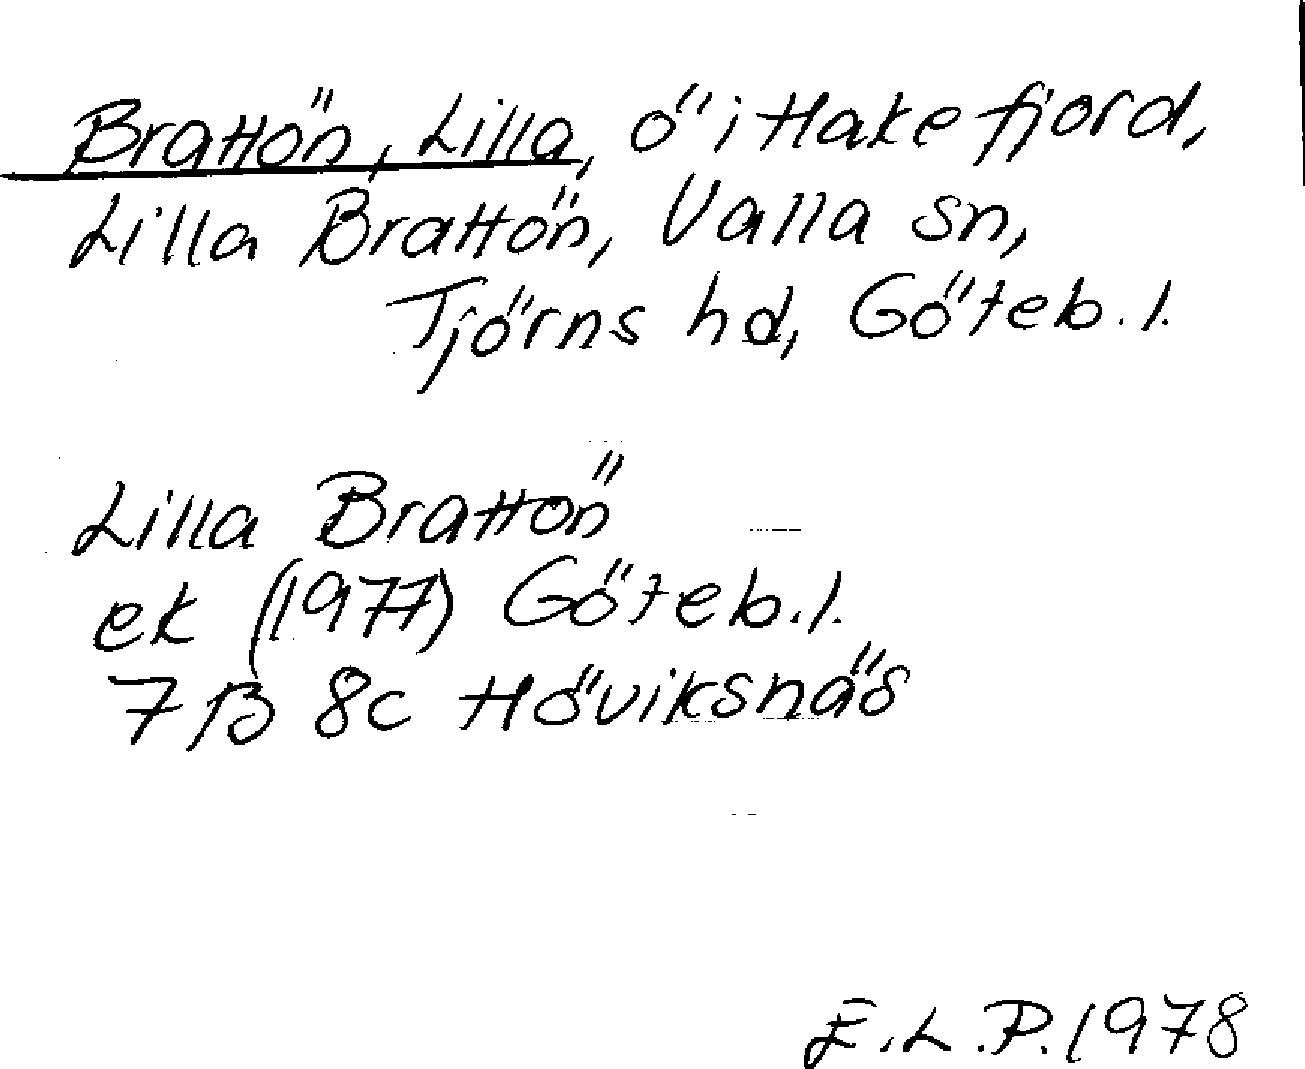 Brattön, Lilla, ö i Hakefjord,
Lilla Brattön, Valla sn,
Tjörns hd, Göteb. l.
Lilla Brattön
ek (1977) Göteb. l.
7B 8c Höviksnäs
E.L.P. 1978